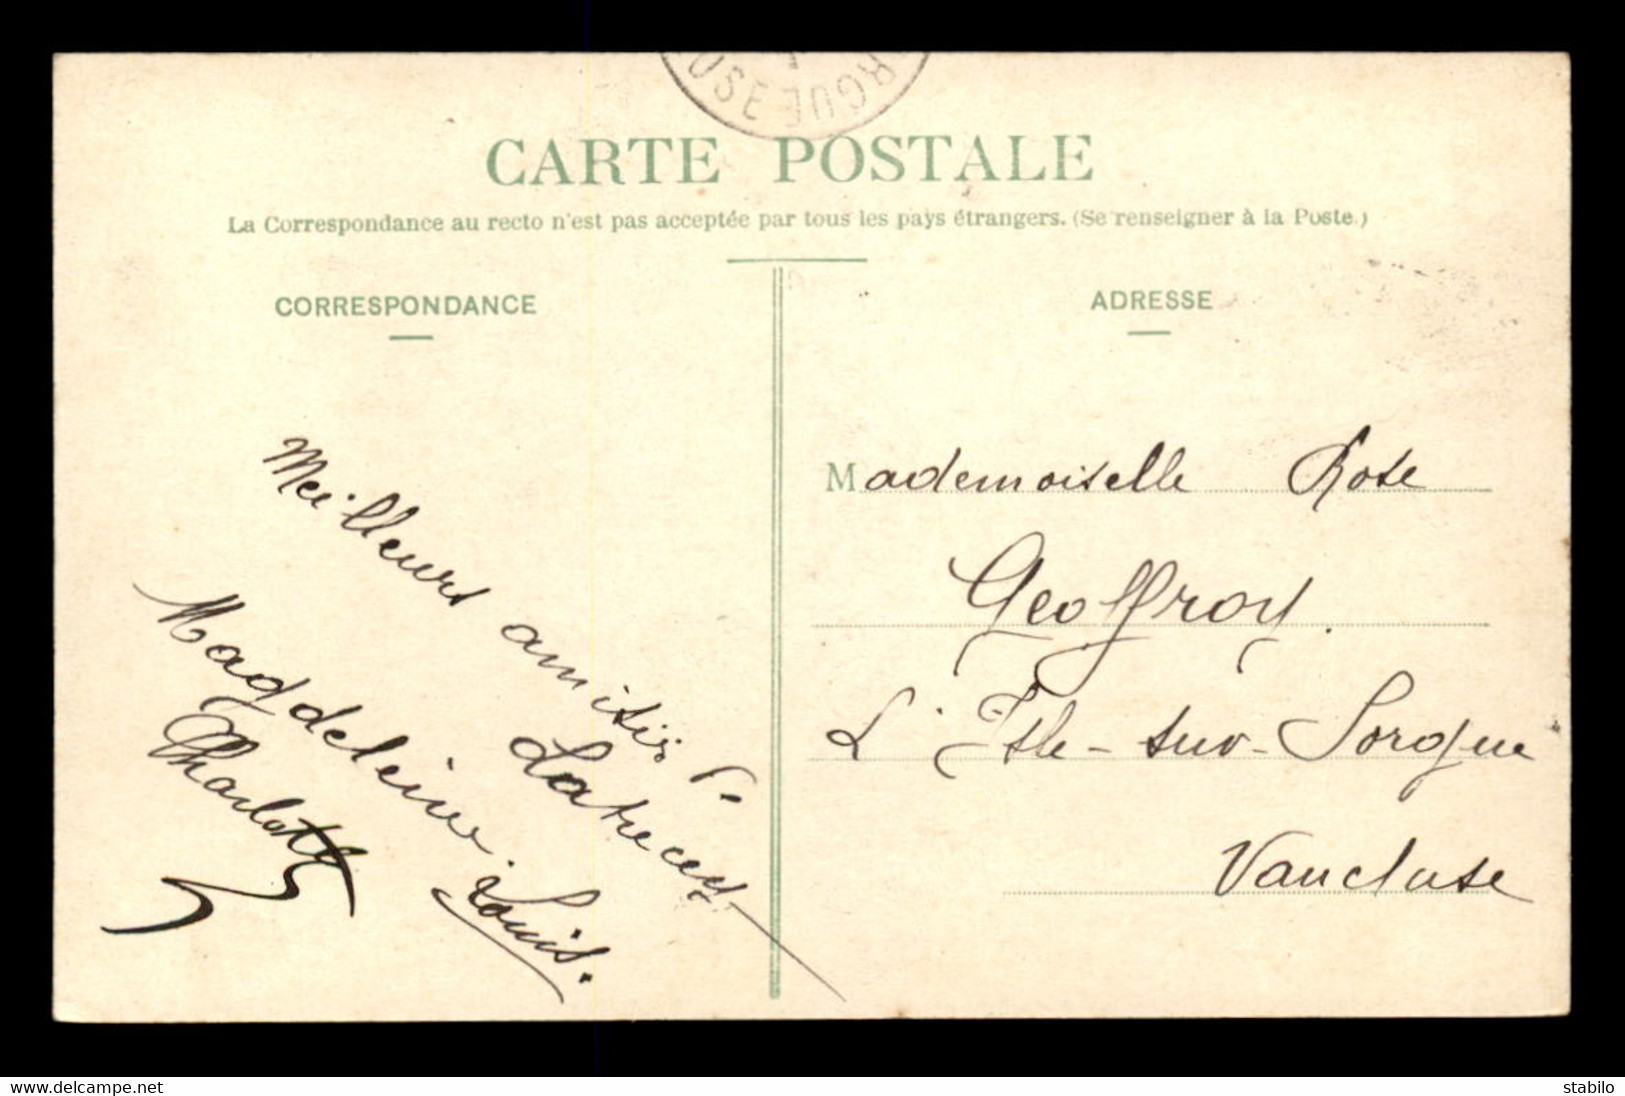 USE RGUE
CARTE POSTALE
La Correspondance au recto n'est pas acceptée par tous les pays étrangers. (Se renseigner à la Poste.)
CORRESPONDANCE
Meilleurs amitiés
Magdeleine.
Charlotte
Louis.
ADRESSE
Mademoiselle Rose
Geoffroy.
L'Isle-sur-Sorgue
Vaucluse
www.delcampe.net
stabilo